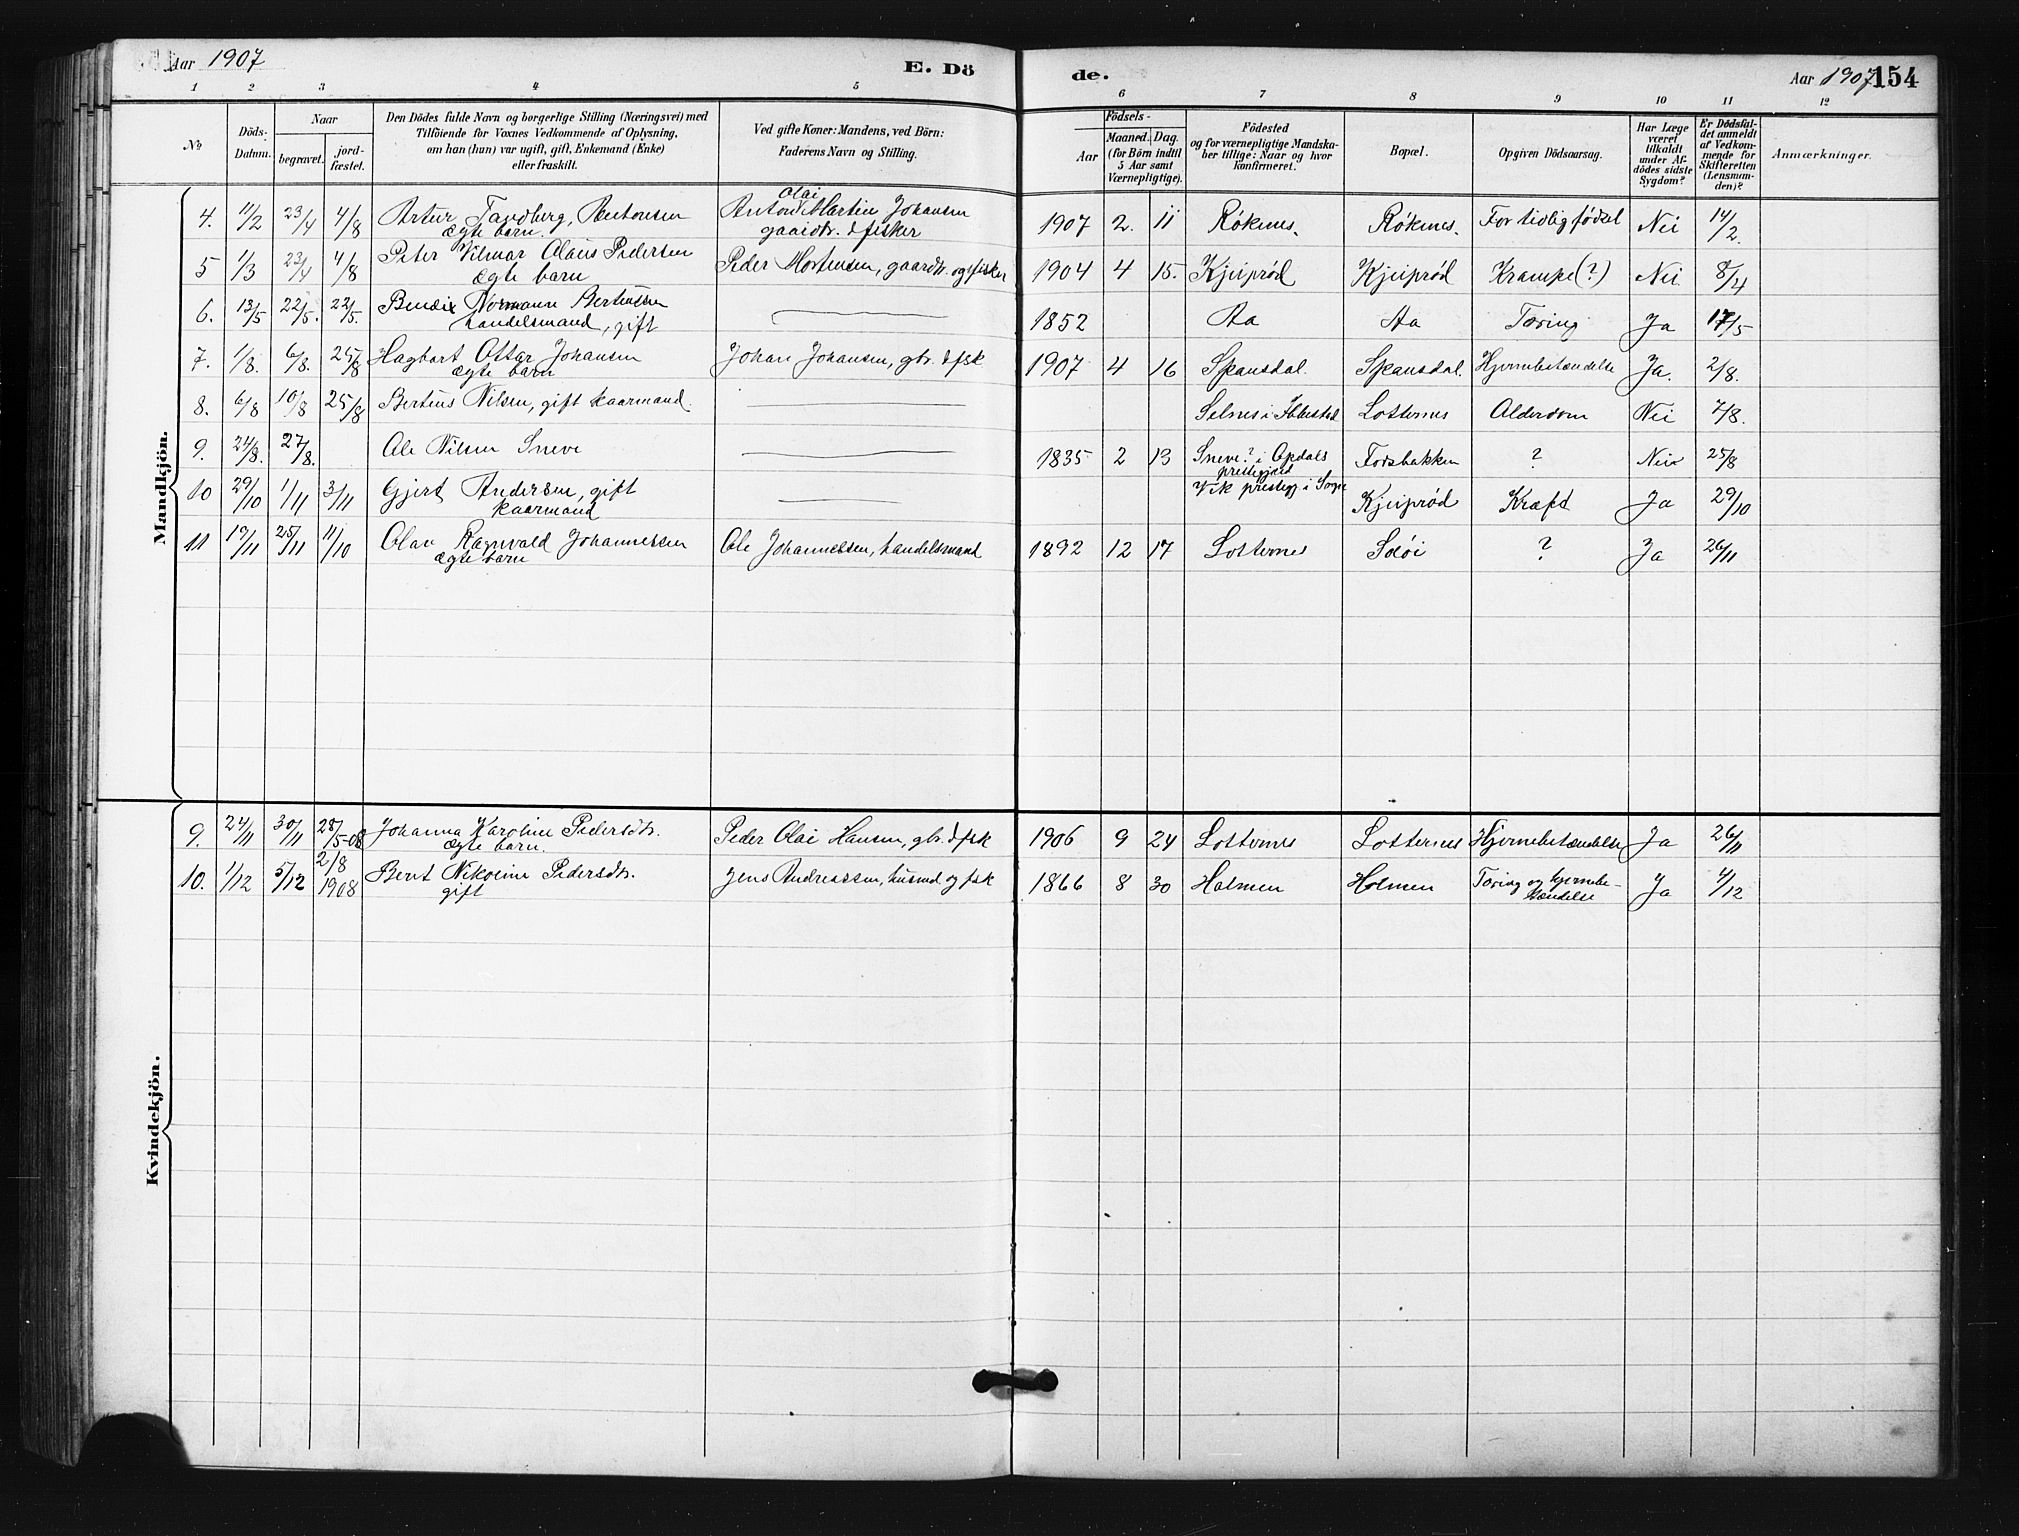 Aar 1907 E. Dö de. Aar 1907 154
1 2 3 4 5 6 7 8 9 10 11 12
No
Döds-Datum.
Naar
begravet.
jord-fæstet.
Den Dödes fulde Navn og borgerlige Stilling (Næringsvei) med
Tilföiende for Voxnes Vedkommende af Oplysning,
om han (hun) var ugift, gift, Enkemand (Enke)
eller fraskilt.
Ved gifte Koner: Mandens, ved Börn:
Faderens Navn og Stilling.
Födsels-
Aar
Maaned. Dag.
(for Börn indtil
5 Aar samt
Værnepligtige).
Födested
og for værnepligtige Mandska-
ber tillige: Naar og hvor
konfirmeret.
Bopæl.
Opgiven Dödsaarsag.
Har Læge
været
tilkaldt
under Af-
dödes sidste
Sygdom?
Er Dödsfal-
det anmeldt
af Vedkom-
mende for
Skifteretten
(Lensman-
den)?
Anmærkninger.
Mandkjön.
4. 11/2 23/4 4/8 Artur Tandberg, Antonsen Anton Olai Martin Johansen 1907 2. 11 Røkenes. Røkenes. For tidlig fødsel Nei 14/2.
ægte barn. gaardbr. & fisker
5 1/3 23/4 4/8 Peter Vilmar Olaus Pedersen Peder Mortensen, gaardbr. og fisker 1904 4 15. Kjeiprød Kjeiprød Krampe (?) Nei 8/4
ægte barn
6. 13/5 22/5. 22/5. Bendix Normann Berteussen 1852 Aa Aa Tæring Ja 17/5
handelsmand, gift
7. 1/8. 6/8. 25/8 Hagbart Ottar Johansen Johan Johansen, gbr. & fsk 1907 4 16 Spansdal. Spansdal. Hjernebetændelse Ja. 2/8.
ægte barn
8. 6/8 10/8 25/8 Berteus Nilsen, gift kaarmand. Selnes i Ibbestad Lotternes Alderdom Nei 7/8.
9. 24/8. 27/8. Ole Nilsen Sneve 1835 2 13 Sneve? i Opdals Fosbakken ? Nei 25/8
prestegjæld
10 29/10 1/11 3/11 Gjert Andersen, gift Vik prestegj. i Sogn Kjeiprød Kræft Ja 29/10
kaarmand
11 19/11 25/11 11/10 Olav Ragnvald Johannessen Ole Johannessen, handelsmand 1892 12 17 Lotternes Soløi ? Ja 26/11
ægte barn
Kvindekjön.
9. 24/11 30/11 28/5-08 Johanna Karoline Pedersdtr. Peder Olai Hansen, gbr. & fsk 1906 9 24 Lotternes Lotternes Hjernebetændelse Ja 26/11
ægte barn.
10. 1/12 5/12 2/8 1908 Berit Nikoline Pedersdtr. Jens Andreassen, husmd og fsk 1866 8 30 Holmen Holmen Tæring og hjernebe- Ja 4/12
gift tændelse